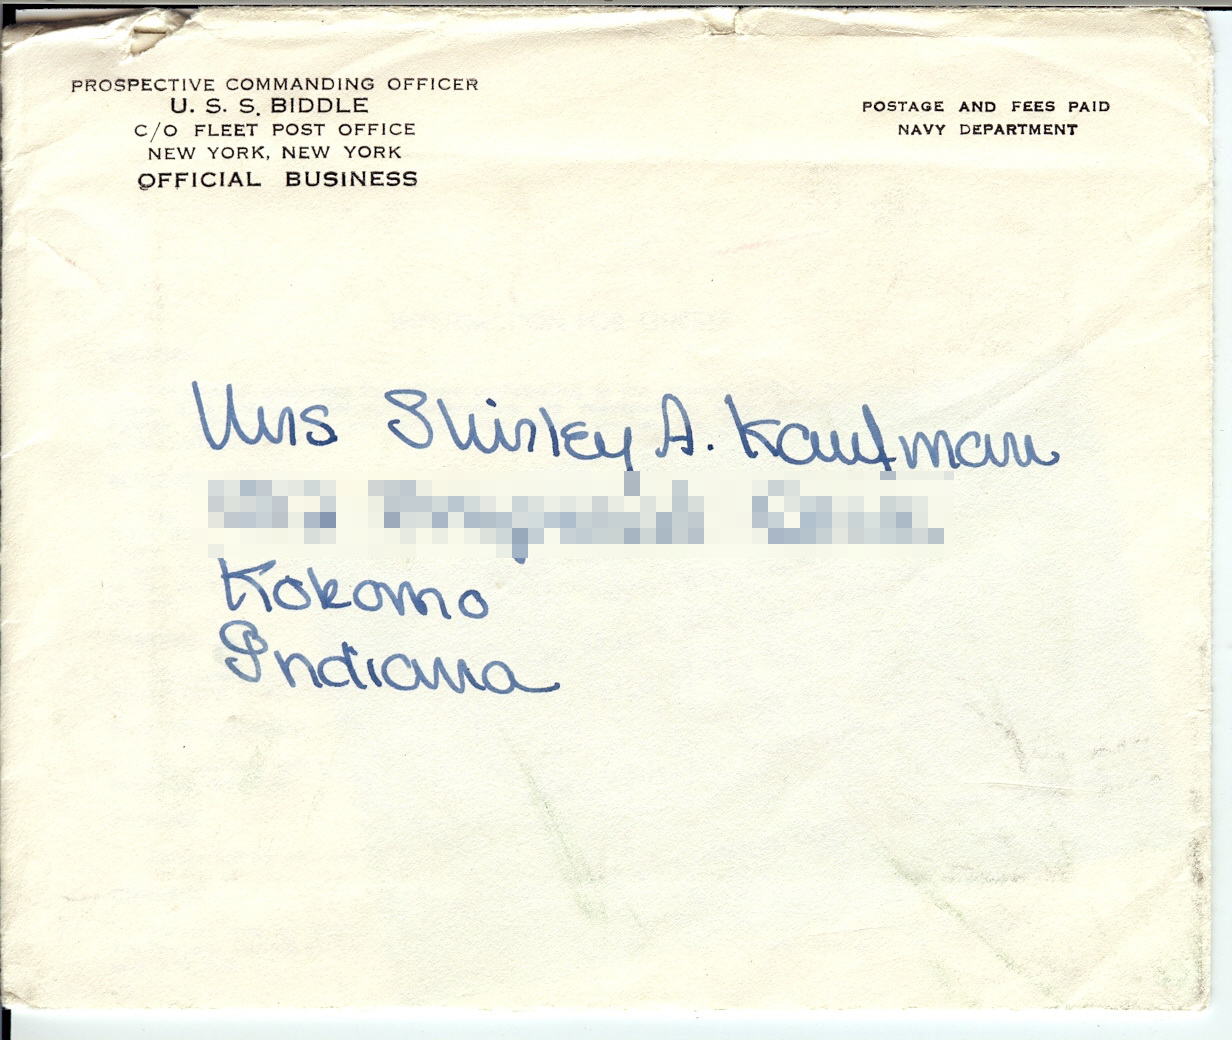 PROSPECTIVE COMMANDING OFFICER
U. S. S. BIDDLE
C/O FLEET POST OFFICE
NEW YORK, NEW YORK
OFFICIAL BUSINESS
POSTAGE AND FEES PAID
NAVY DEPARTMENT
Mrs Shirley A. Kaufman
Kokomo
Indiana